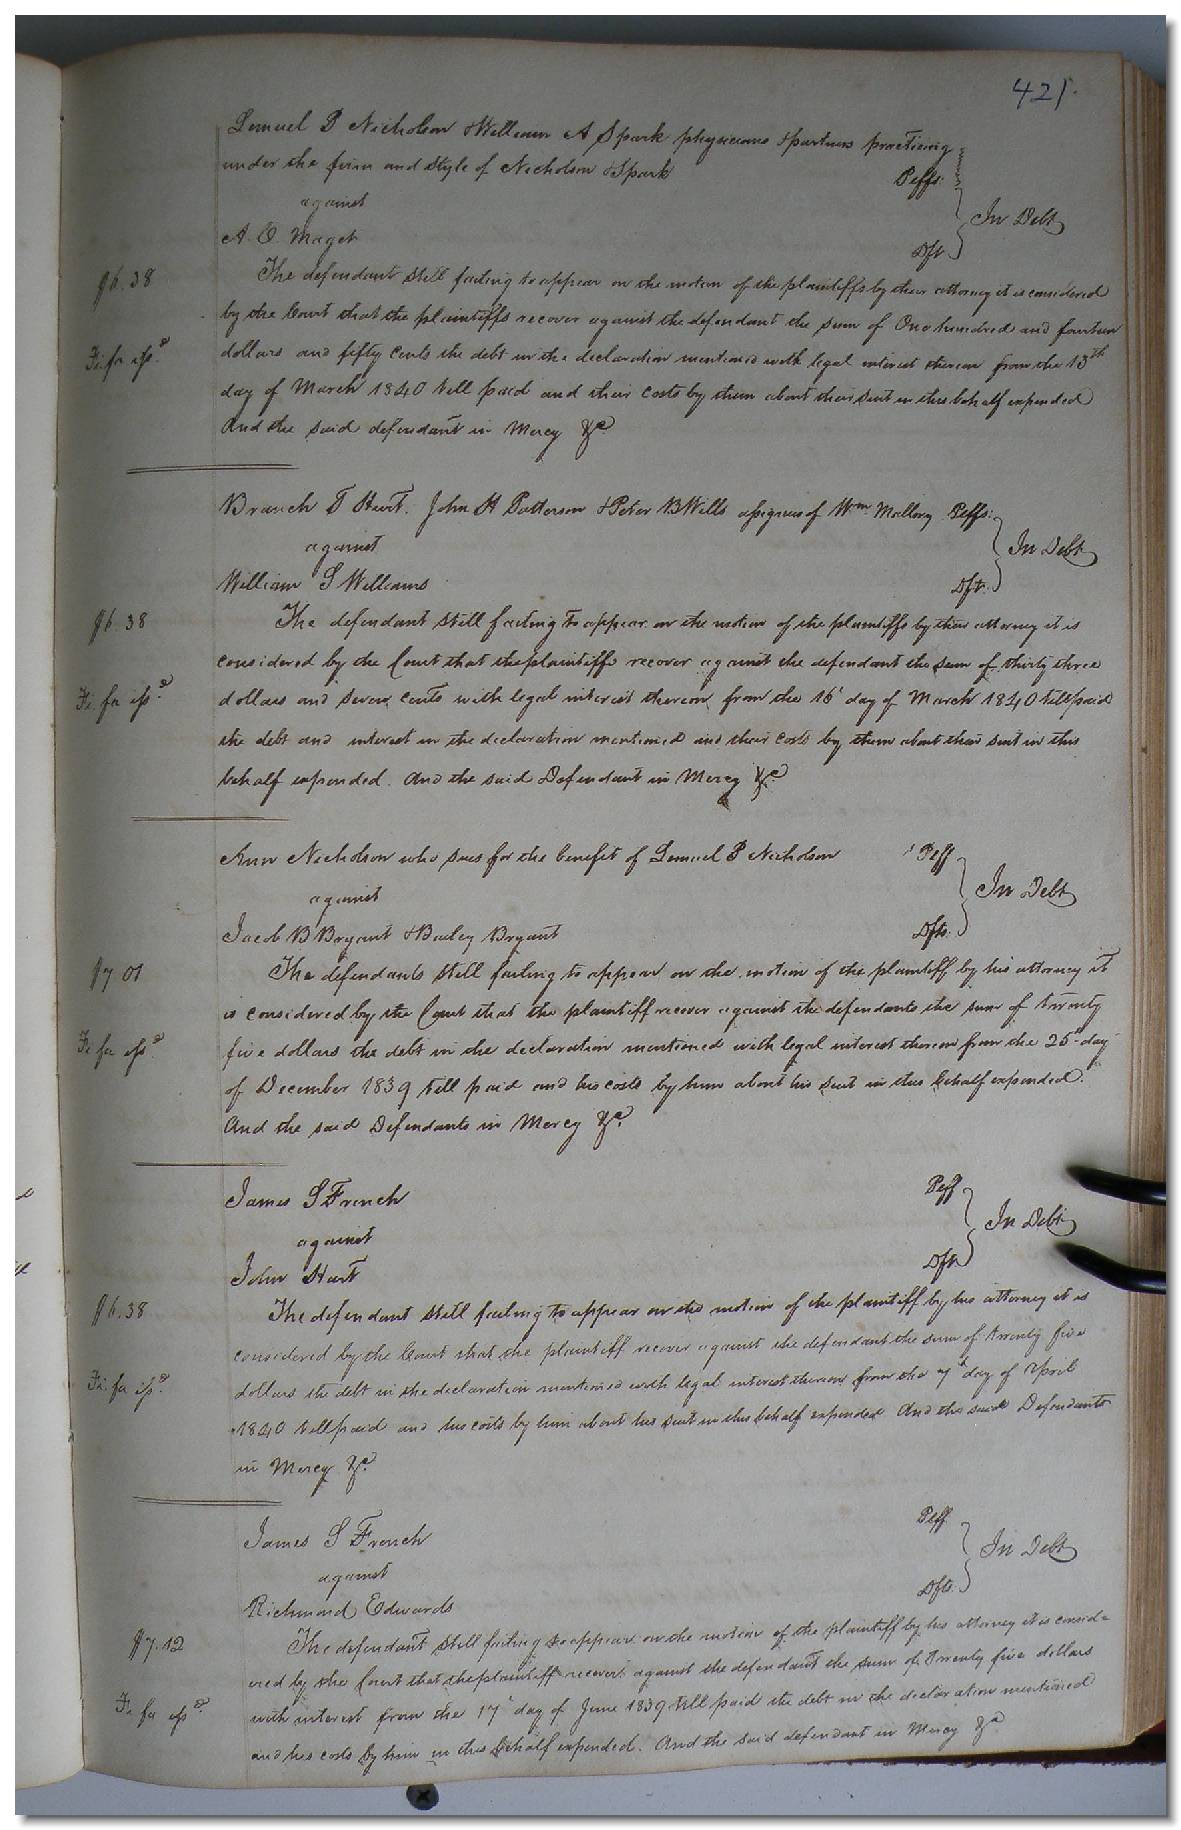 421.
Lemuel P Nicholson & William A Spark physicians & partners practicing
under the firm and style of Nicholson & Spark Plffs.
against In Debt
A. O. Maget Dft
$6.38 The defendant still failing to appear on the motion of the plaintiffs by their attorney it is considered
by the Court that the plaintiffs recover against the defendant the sum of One hundred and fourteen
Fi. fa issd. dollars and fifty cents the debt in the declaration mentioned with legal interest thereon from the 13th
day of March 1840 till paid and their costs by them about their suit in this behalf expended
And the said defendant in Mercy &c
Branch T Hurt. John H Patterson & Peter B Wills assignees of Wm. Mallory Plffs.
against In Debt
William S Williams Dft.
$6.38 The defendant still failing to appear on the motion of the plaintiffs by their attorney it is
considered by the Court that the plaintiffs recover against the defendant the sum of thirty three
Fi. fa issd. dollars and seven cents with legal interest thereon from the 16 day of March 1840 till paid
the debt and interest in the declaration mentioned and their costs by them about their suit in this
behalf expended. And the said Defendant in Mercy &c.
Ann Nicholson who sues for the benefit of Lemuel P Nicholson Plff
against In Debt
Jacob B Bryant & Bailey Bryant Dfts.
$7 01 The defendants still failing to appear on the motion of the plaintiff by his attorney it
is considered by the Court that the plaintiff recover against the defendants the sum of twenty
Fi fa issd. five dollars the debt in the declaration mentioned with legal interest thereon from the 25 day
of December 1839 till paid and his costs by him about his suit in this behalf expended.
And the said Defendants in Mercy &c.
James S French Plff
against In Debt
John Hart Dft
$6.38 The defendant still failing to appear on the motion of the plaintiff by his attorney it is
considered by the Court that the plaintiff recover against the defendant the sum of twenty five
Fi. fa issd. dollars the debt in the declaration mentioned with legal interest thereon from the 7 day of April
1840 till paid and his costs by him about his suit in this behalf expended And the said Defendants
in Mercy &c.
James S French Plff
against In Debt
Richmond Edwards Dft.
$7.12 The defendant still failing to appear on the motion of the plaintiff by his attorney it is conside
ered by the Court that the plaintiff recover against the defendant the sum of twenty five dollars
Fi fa issd. with interest from the 17 day of June 1839 till paid the debt in the declaration mentioned
and his costs by him in this behalf expended. And the said defendant in Mercy &c